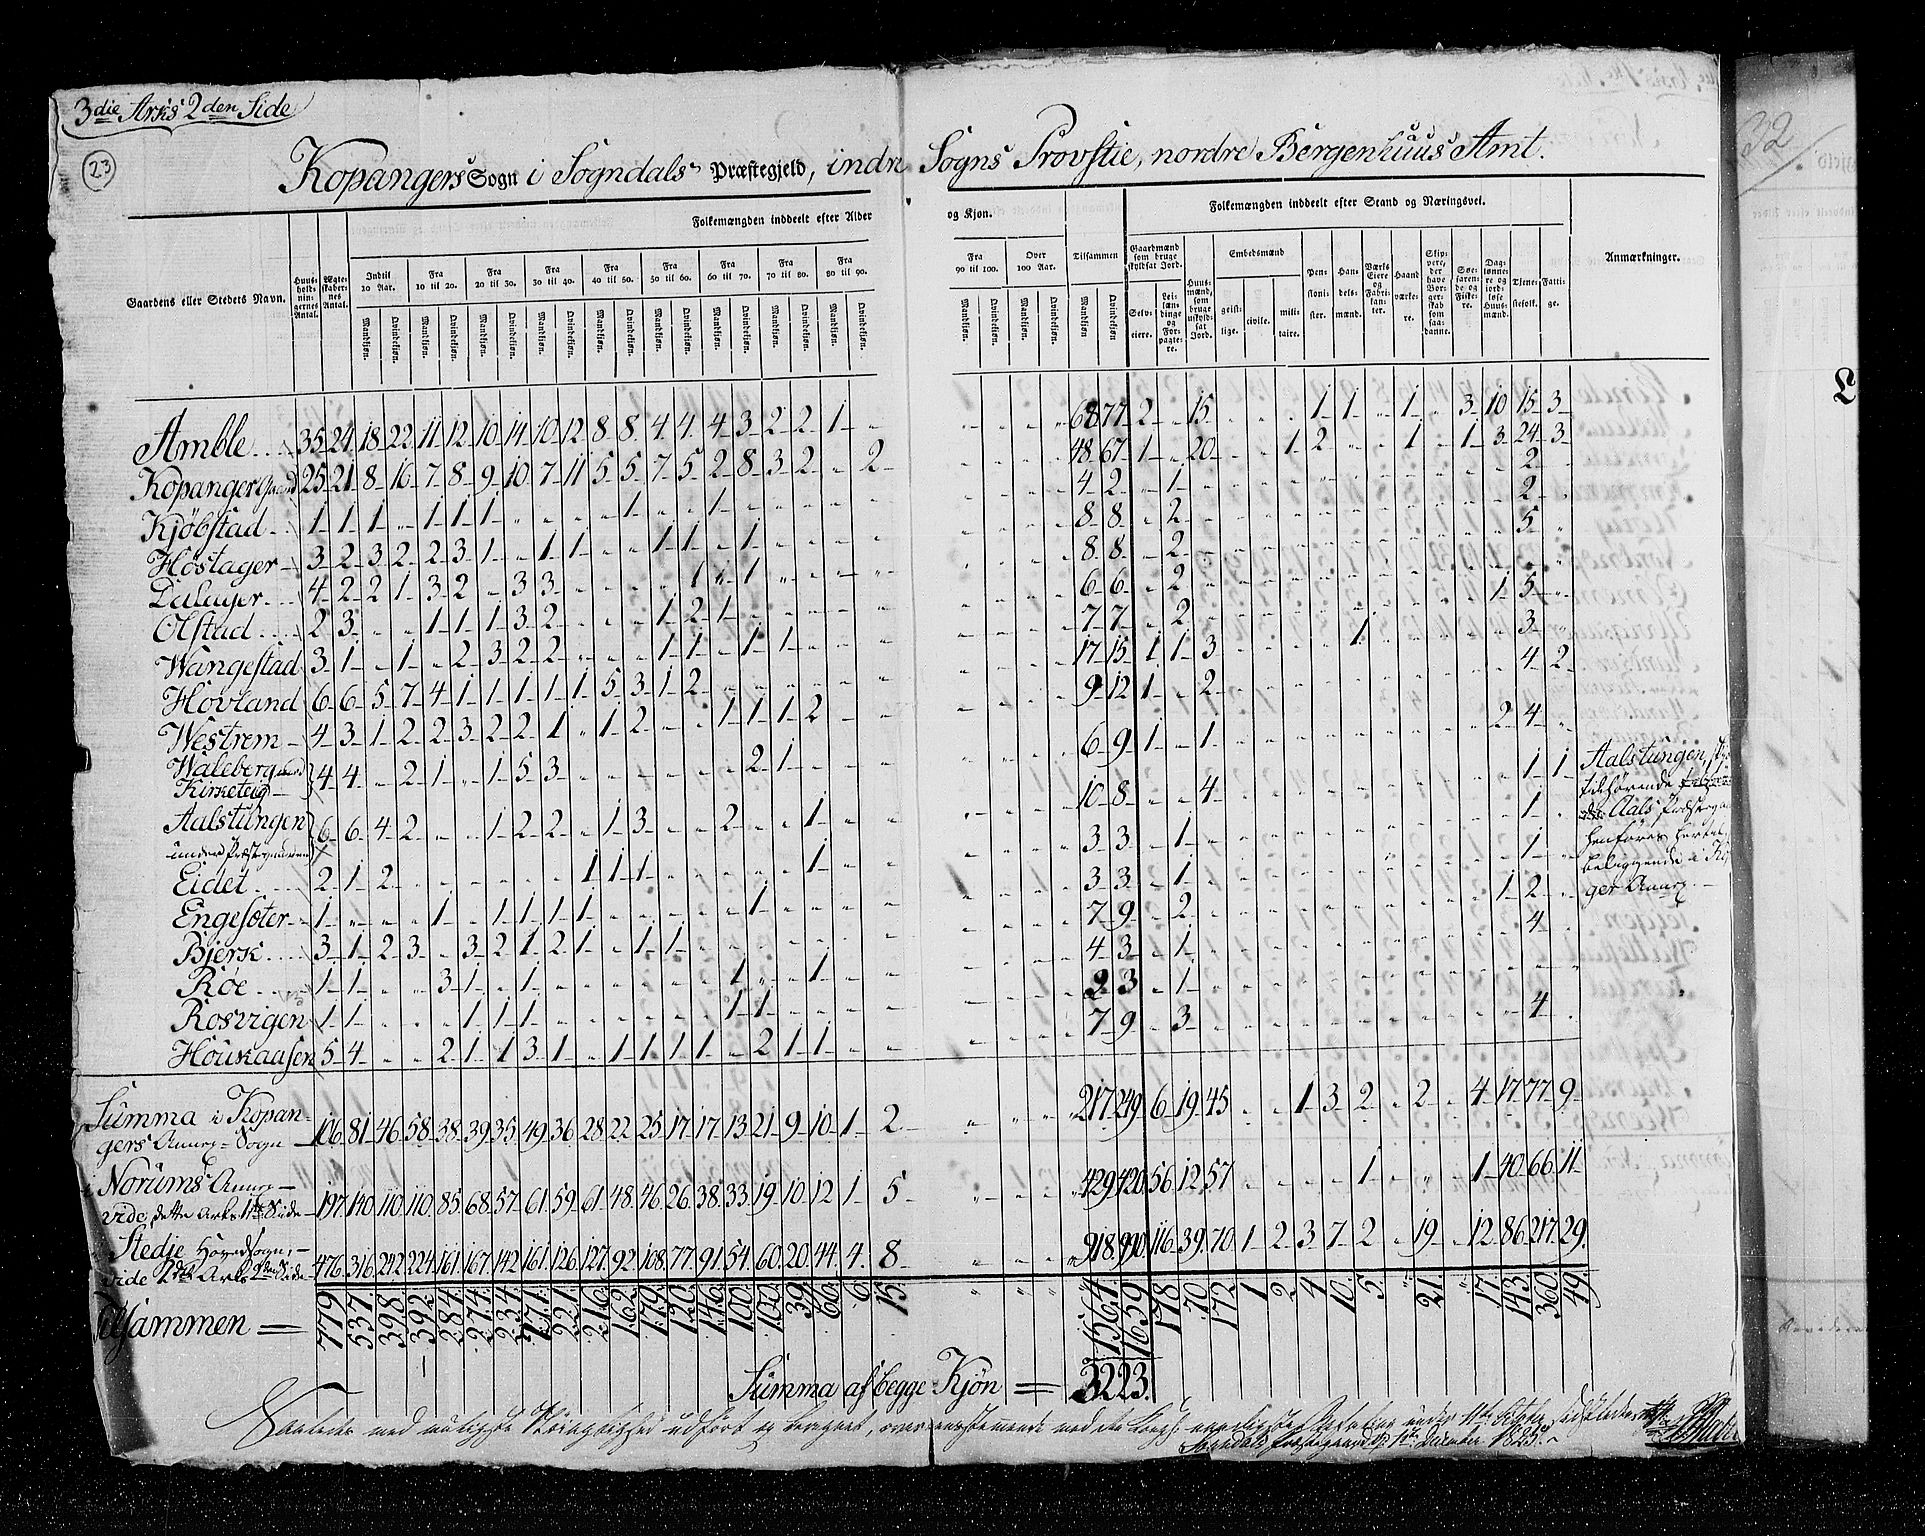 3die Arks 2den Side
23
32
Kopangers Sogn i Sogndals Præstegjeld, indre Sogns Provstie, nordre Bergenhuus Amt.
Gaardens eller Stedets Navn. Huusholdningernes Antal. Ægteskabernes Antal. Folkemængden inddeelt efter Alder og Kjøn. Tilsammen Folkemængden inddeelt efter Stand og Næringsvei. Anmærkninger.
Indtil 10 Aar. Fra 10 til 20. Fra 20 til 30. Fra 30 til 40. Fra 40 til 50. Fra 50 til 60. Fra 60 til 70. Fra 70 til 80. Fra 80 til 90. Fra 90 til 100. Over 100 Aar.
Mandkjøn. Qvindekjøn.
Gaardmænd som bruge skyldsat Jord. Selveiere. Leilændinge og Forpagtere. Huusmænd, som bruge uskyldsat Jord. Embedsmænd geistlige. civile. militaire. Pensionister. Handelsmænd. Værkseiere og Fabrikanter. Haandværkere. Skippere, der have Borgerskab som saadanne. Søefarende og Fiskere. Dagslønnere og jordløse Huusmænd. Tjenestefolk. Fattige.
Amble 35 24 18 22 11 12 10 14 10 12 8 8 4 4 4 3 2 2 1 " 68 77 2 " 15 " " " 1 1 " 1 " 3 10 15 3
Kopanger Gaard 25 21 8 16 7 8 9 10 7 11 5 5 7 5 2 8 3 2 " 2 48 67 1 " 20 " " 1 2 " " 1 " 1 3 24 3
Kjøbstad 1 1 1 " 1 1 1 " " " " 1 " " 1 4 2 " 1 2
Høstager 3 2 3 2 2 3 1 " 1 1 " " 1 1 " 1 8 8 " 2 2
Dalager 4 2 2 1 3 2 " 3 3 " " " " 1 " 1 8 8 " 2 5
Olstad 2 3 " " 1 1 1 3 2 " " " 1 2 1 6 6 " 2
Wangestad 3 1 " 1 " 2 3 2 2 " " " 1 1 " 1 1 7 7 " 2 1 5
Hovland 6 6 5 7 4 1 1 1 1 1 5 3 1 2 17 15 1 1 3 1 3
Westrem 4 3 1 2 2 3 2 2 1 " 1 2 " " 1 1 1 2 9 12 1 " 2 4 2
Waleberg med Kirketeig 4 4 " 2 1 " 1 5 3 " " " " " " 2 1 6 9 1 " 1 2 4
Aalstungen under Præstegaarden 6 6 4 2 " " 1 2 2 " 1 3 " " 2 " " 1 10 8 " " 4 1 1
Eidet 2 1 2 " " " " " " 1 1 1 " " " " " 1 3 3 " 1 1
Engesøter 1 " " " 1 " 1 1 1 1 " " " " " 1 3 3 " 1 1
Bjerk 3 1 2 3 " 3 2 1 2 1 " 1 1 7 9 " 2 1 2
Røe 1 1 " " 3 1 " 1 " " " " " " 1 " " 1 4 3 " 1 4
Rosvigen 1 1 " " " 1 1 1 " " " " " " 1 1 2 3 " 1
Houkaasen 5 4 " " 2 1 1 3 1 " 1 1 1 1 " 2 1 1 7 9 " 3 4
Aalstungen,
tilhørende
Aals Præstega
henføres
beliggende i Kop
ger Annex.
Summa i Kopan-
gers Annex-Sogn 106 81 46 58 38 39 35 49 36 28 22 25 17 17 13 21 9 10 1 2 217 249 6 19 45 " " 1 3 2 " 2 " 4 17 77 9
i Norums Annex
vide dette Arks 1ste Side 197 140 110 110 85 68 57 61 59 61 48 46 26 38 33 19 10 12 1 5 429 420 56 12 57 1 1 40 66 11
i Stedje Hovedsogn,
vide 2det Arks 2den Side 476 316 242 224 161 167 142 161 126 127 92 108 77 91 54 60 20 44 4 8 918 990 116 39 70 1 2 3 7 2 " 19 " 12 86 217 29
Tilsammen = 779 537 398 392 284 274 234 271 221 216 162 179 120 146 100 100 39 66 6 15 1564 1659 178 70 172 1 2 4 10 5 " 21 " 17 143 360 49
Summa af begge Kjøn = 3223.
Saaledes med muligste Nöiagtighed udført og beregnet, overensstemmende med
Sogndals Præstegaard d. 1ste December 1825.